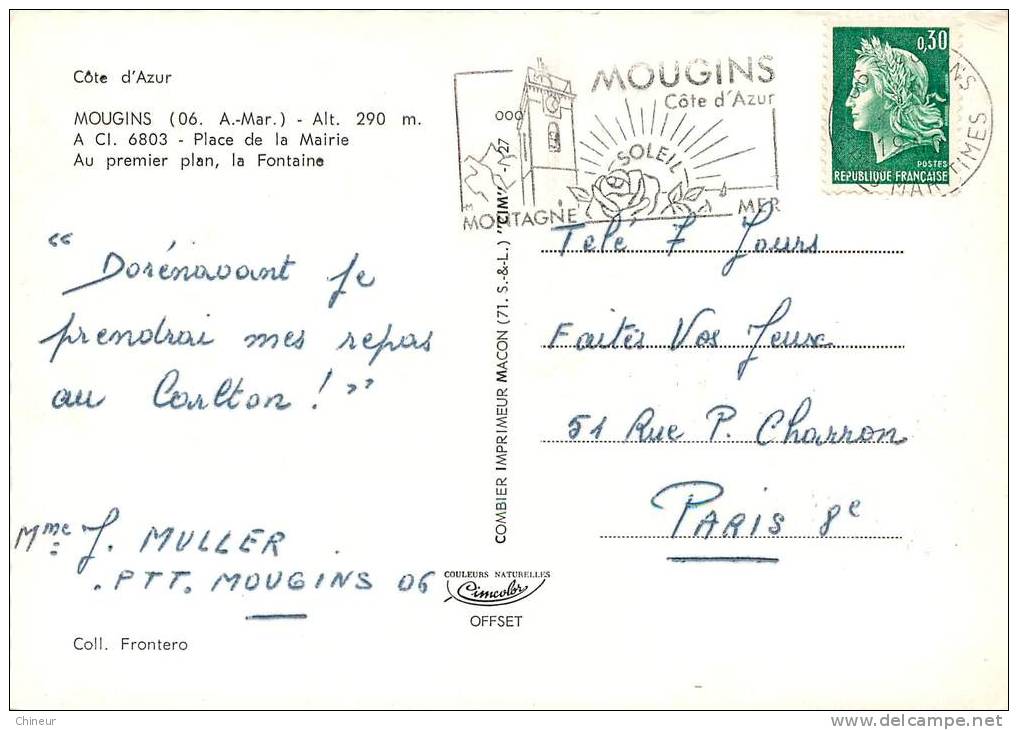 Côte d'Azur
MOUGINS (06. A.-Mar.) - Alt. 290 m.
A CI. 6803 - Place de la Mairie
Au premier plan, la Fontaine
" Dorénavant je
prendrai mes repas
au Carlton ! "
Mme J. MULLER
. PTT. MOUGINS 06
Coll. Frontero
COMBIER IMPRIMEUR MACON (71. S.-&-L.) "CIM"
COULEURS NATURELLES
Cimcolor
OFFSET
MOUGINS
Côte d'Azur
SOLEIL
MONTAGNE
MER
0,30
POSTES
RÉPUBLIQUE FRANÇAISE
MARITIMES
Télé 7 Jours
Faites Vos Jeux
51 Rue P. Charron
PARIS 8e
Chineur
delcampe.net